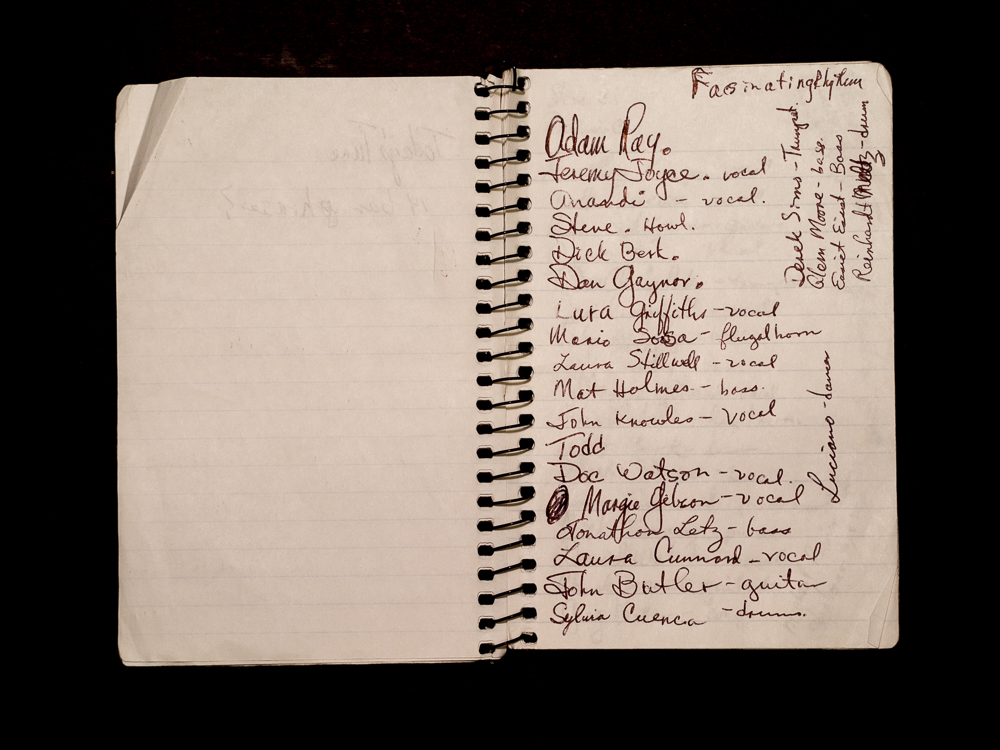 Fascinating Rhythm
Adam Ray.
Jeremy Joyce - vocal
Anandi - vocal.
Steve. Howl.
Dick Berk.
Dan Gaynor.
Lura Griffiths - vocal
Mario Sosa - flugelhorn
Laura Stillwell - vocal
Mat Holmes - bass.
John Knowles - vocal
Todd
Doc Watson - vocal.
Margie Gibson - vocal
Jonathon Letz - bass
Laura Cunnard - vocal
John Butler - guitar
Sylvia Cuenca - drums.
Derek Sims - Trumpet.
Glen Moore - bass.
Essiet Essiet - Bass
Reinhardt - drum
Luciano - dancer